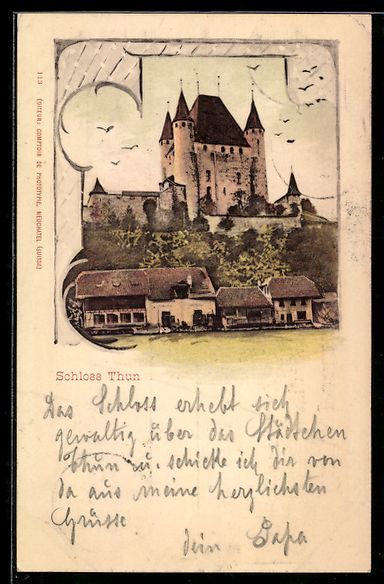 113 EDITEUR: COMPTOIR DE PHOTOTYPIE, NEUCHATEL (SUISSE)
Schloss Thun
Das Schloss erhebt sich
gewaltig über das Städtchen
Thun u. schicke ich Dir von
da aus meine herzlichsten
Grüsse
dein Papa